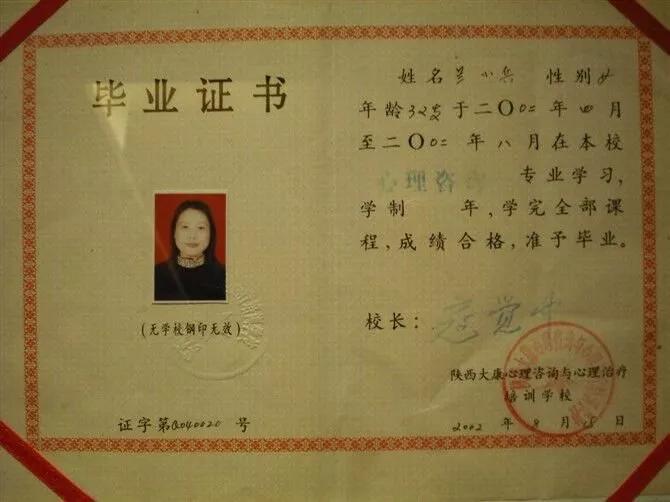 毕业证书
(无学校钢印无效)
证字第Q040020号
姓名 兰小兵 性别 女
年龄32岁于二〇〇二年四月
至二〇〇二年八月在本校
心理咨询 专业学习,
学制 年,学完全部课
程,成绩合格,准予毕业。
校长:
陕西大康心理咨询与心理治疗
培训学校
2002年8月18日